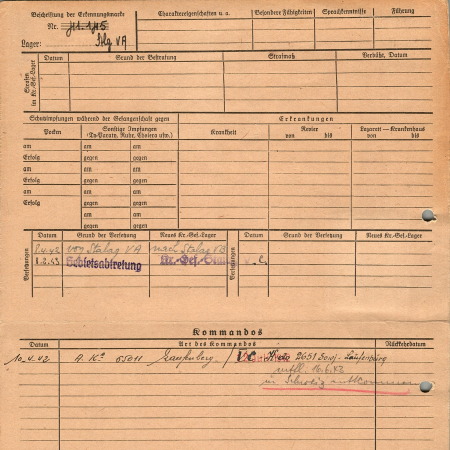 Beschriftung der Erkennungsmarke
Nr.
Lager: Stlg VA
Charaktereigenschaften u. a.
Besondere Fähigkeiten
Sprachkenntnisse
Führung
Strafen im Kr.-Gef.-Lager
Datum
Grund der Bestrafung
Strafmaß
Verbüßt, Datum
Schutzimpfungen während der Gefangenschaft gegen
Erkrankungen
Pocken
Sonstige Impfungen
(Ty-Paraty, Ruhr, Cholera usw.)
Krankheit
Revier
von bis
Lazarett — Krankenhaus
von bis
am am am
Erfolg gegen gegen
am am am
Erfolg gegen gegen
am am am
Erfolg gegen gegen
am am
gegen gegen
Versetzungen
Datum
Grund der Versetzung
Neues Kr.-Gef.-Lager
Versetzungen
Datum
Grund der Versetzung
Neues Kr.-Gef.-Lager
.4.42 von Stalag VA nach Stalag VB
1.2.43 Gebietsabtretung
Kommandos
Datum
Art des Kommandos
Rückkehrdatum
10.4.42 A. Kº 65011 / VC 2051 Laufenburg
entfl. 10.6.43
in Schweiz